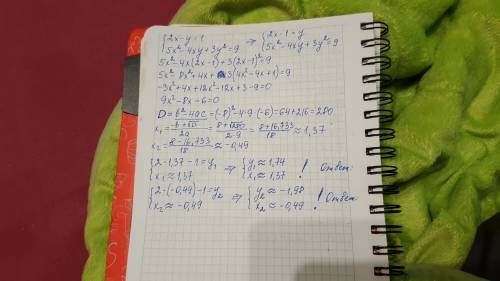 {2x-y=1 ⇒ {2x-1=y
{5x²-4xy+3y²=9 {5x²-4xy+3y²=9
5x²-4x(2x-1)+3(2x-1)²=9
5x²-8x²+4x+3(4x²-4x+1)=9
-3x²+4x+12x²-12x+3-9=0
9x²-8x-6=0
D=b²-4ac=(-8)²-4·9·(-6)=64+216=280
x₁=(-b+√D)/2a=(8+√280)/2·9=(8+16,733)/18≈1,37
x₂=(8-16,733)/18≈-0,49
{2·1,37-1=y₁ ⇒ {y₁≈1,74 ! Ответ:
{x₁≈1,37 {x₁≈1,37
{2·(-0,49)-1=y₂ ⇒ {y₂≈-1,98 ! Ответ:
{x₂≈-0,49 {x₂≈-0,49